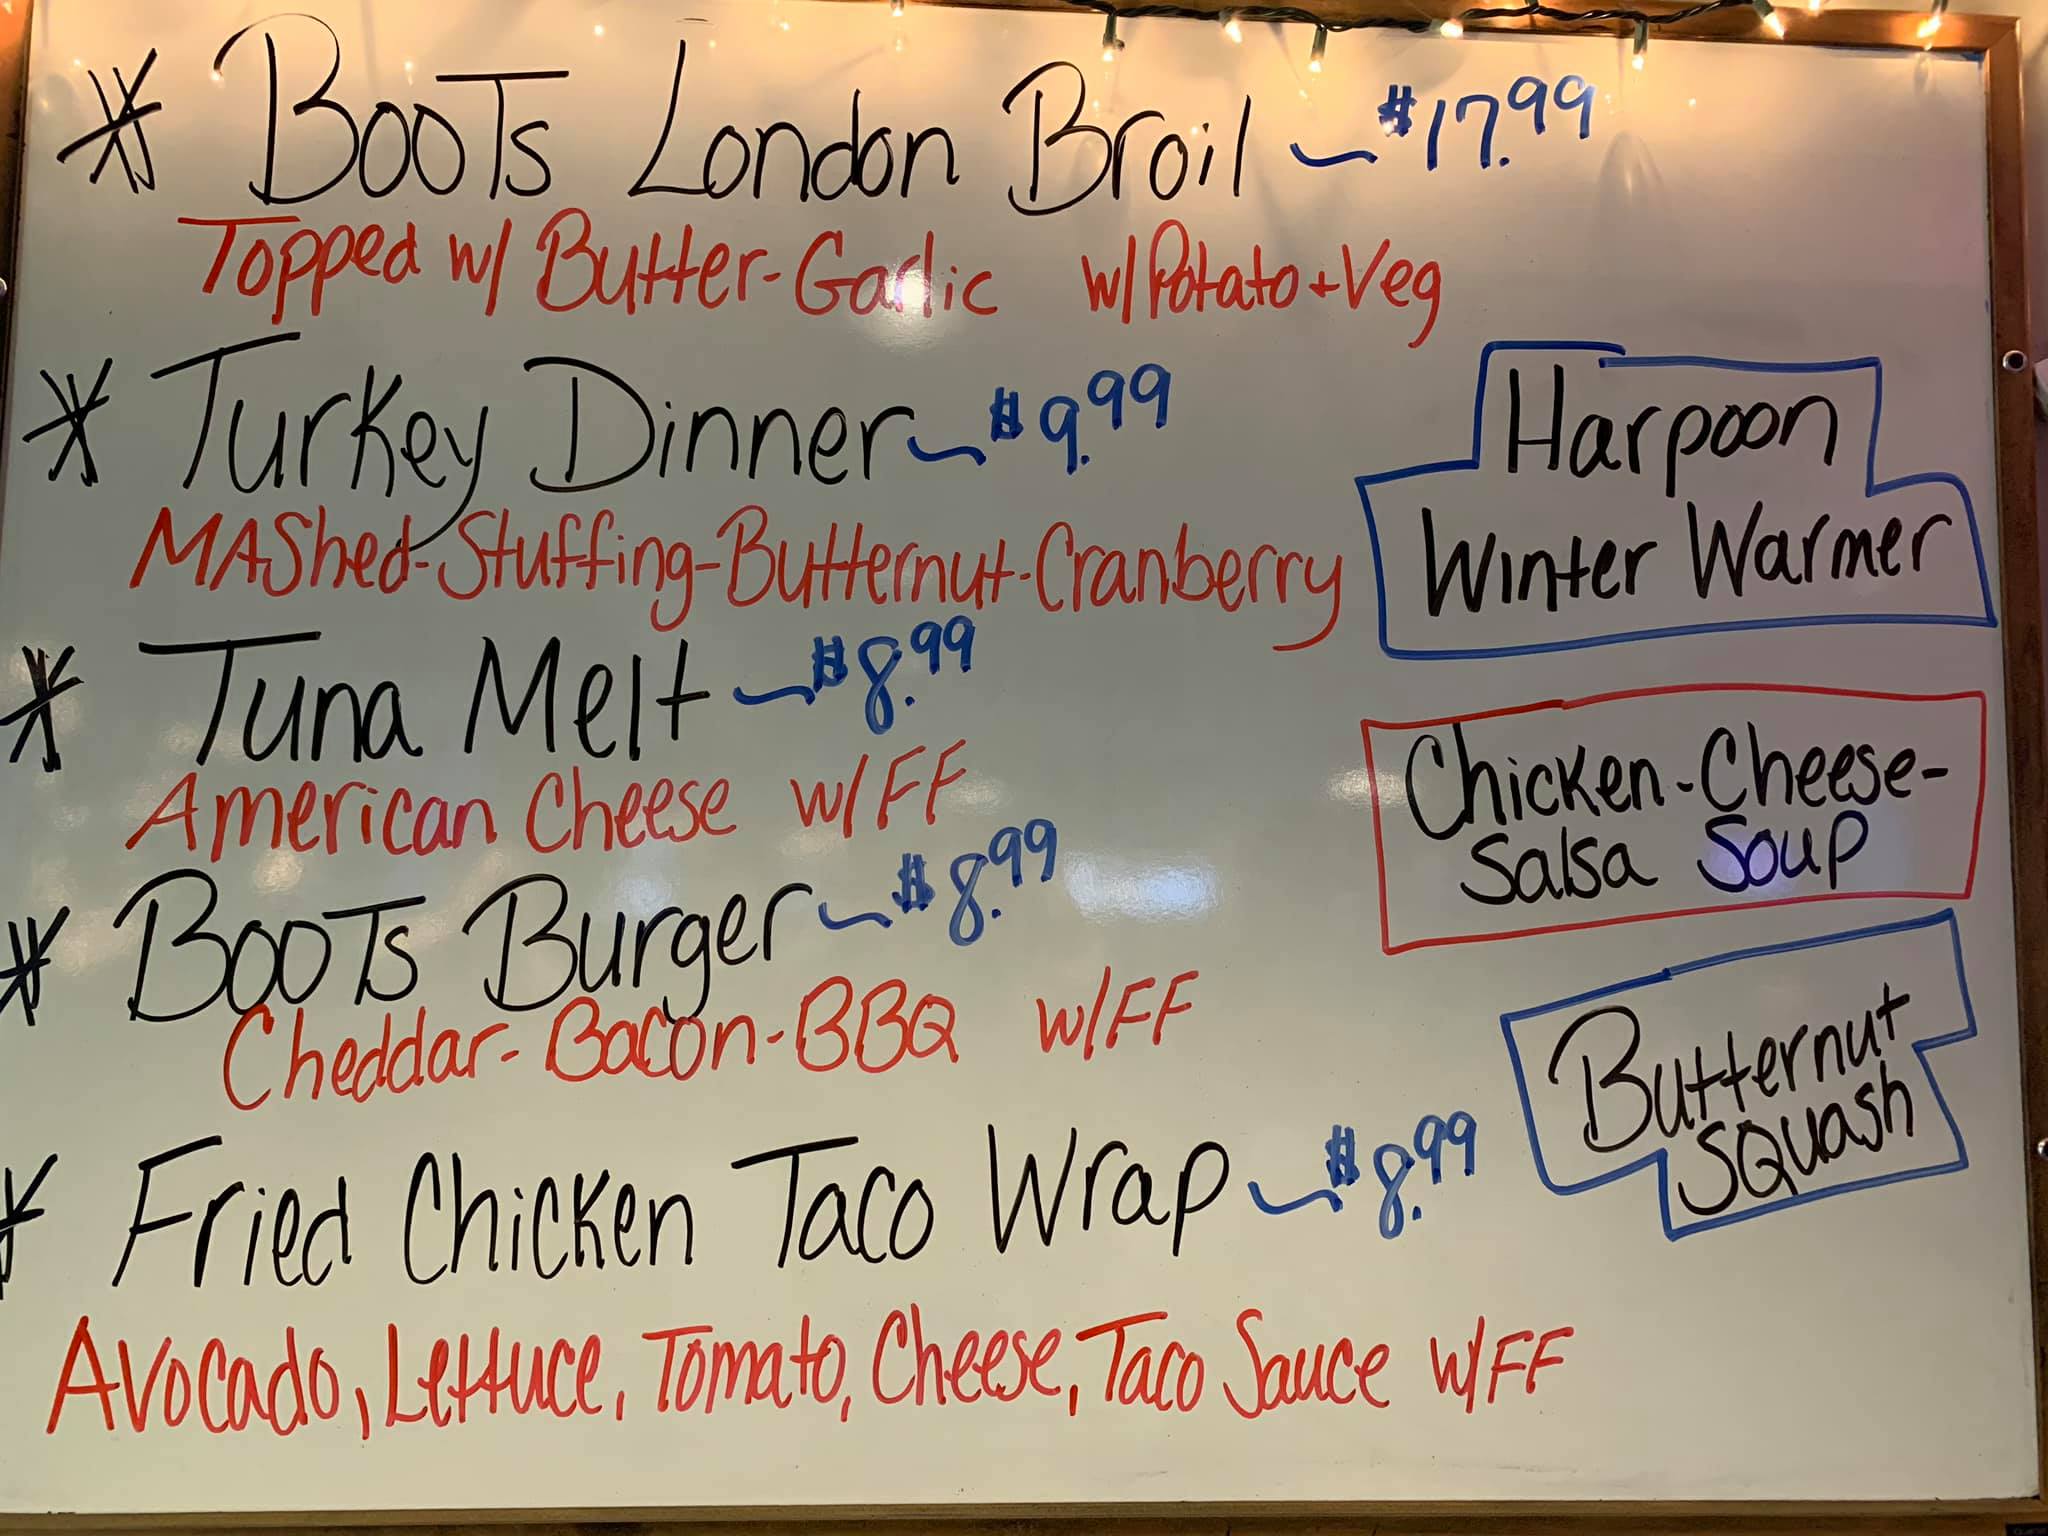 * Boots London Broil ~ $17.99
Topped w/ Butter-Garlic w/Potato+Veg
* Turkey Dinner ~ $9.99
MAShed-Stuffing-Butternut-Cranberry
* Tuna Melt ~ $8.99
American Cheese w/FF
* Boots Burger ~ $8.99
Cheddar-Bacon-BBQ w/FF
* Fried Chicken Taco Wrap ~ $8.99
Avocado, Lettuce, Tomato, Cheese, Taco Sauce w/FF
Harpoon
Winter Warmer
Chicken-Cheese-
Salsa Soup
Butternut
Squash